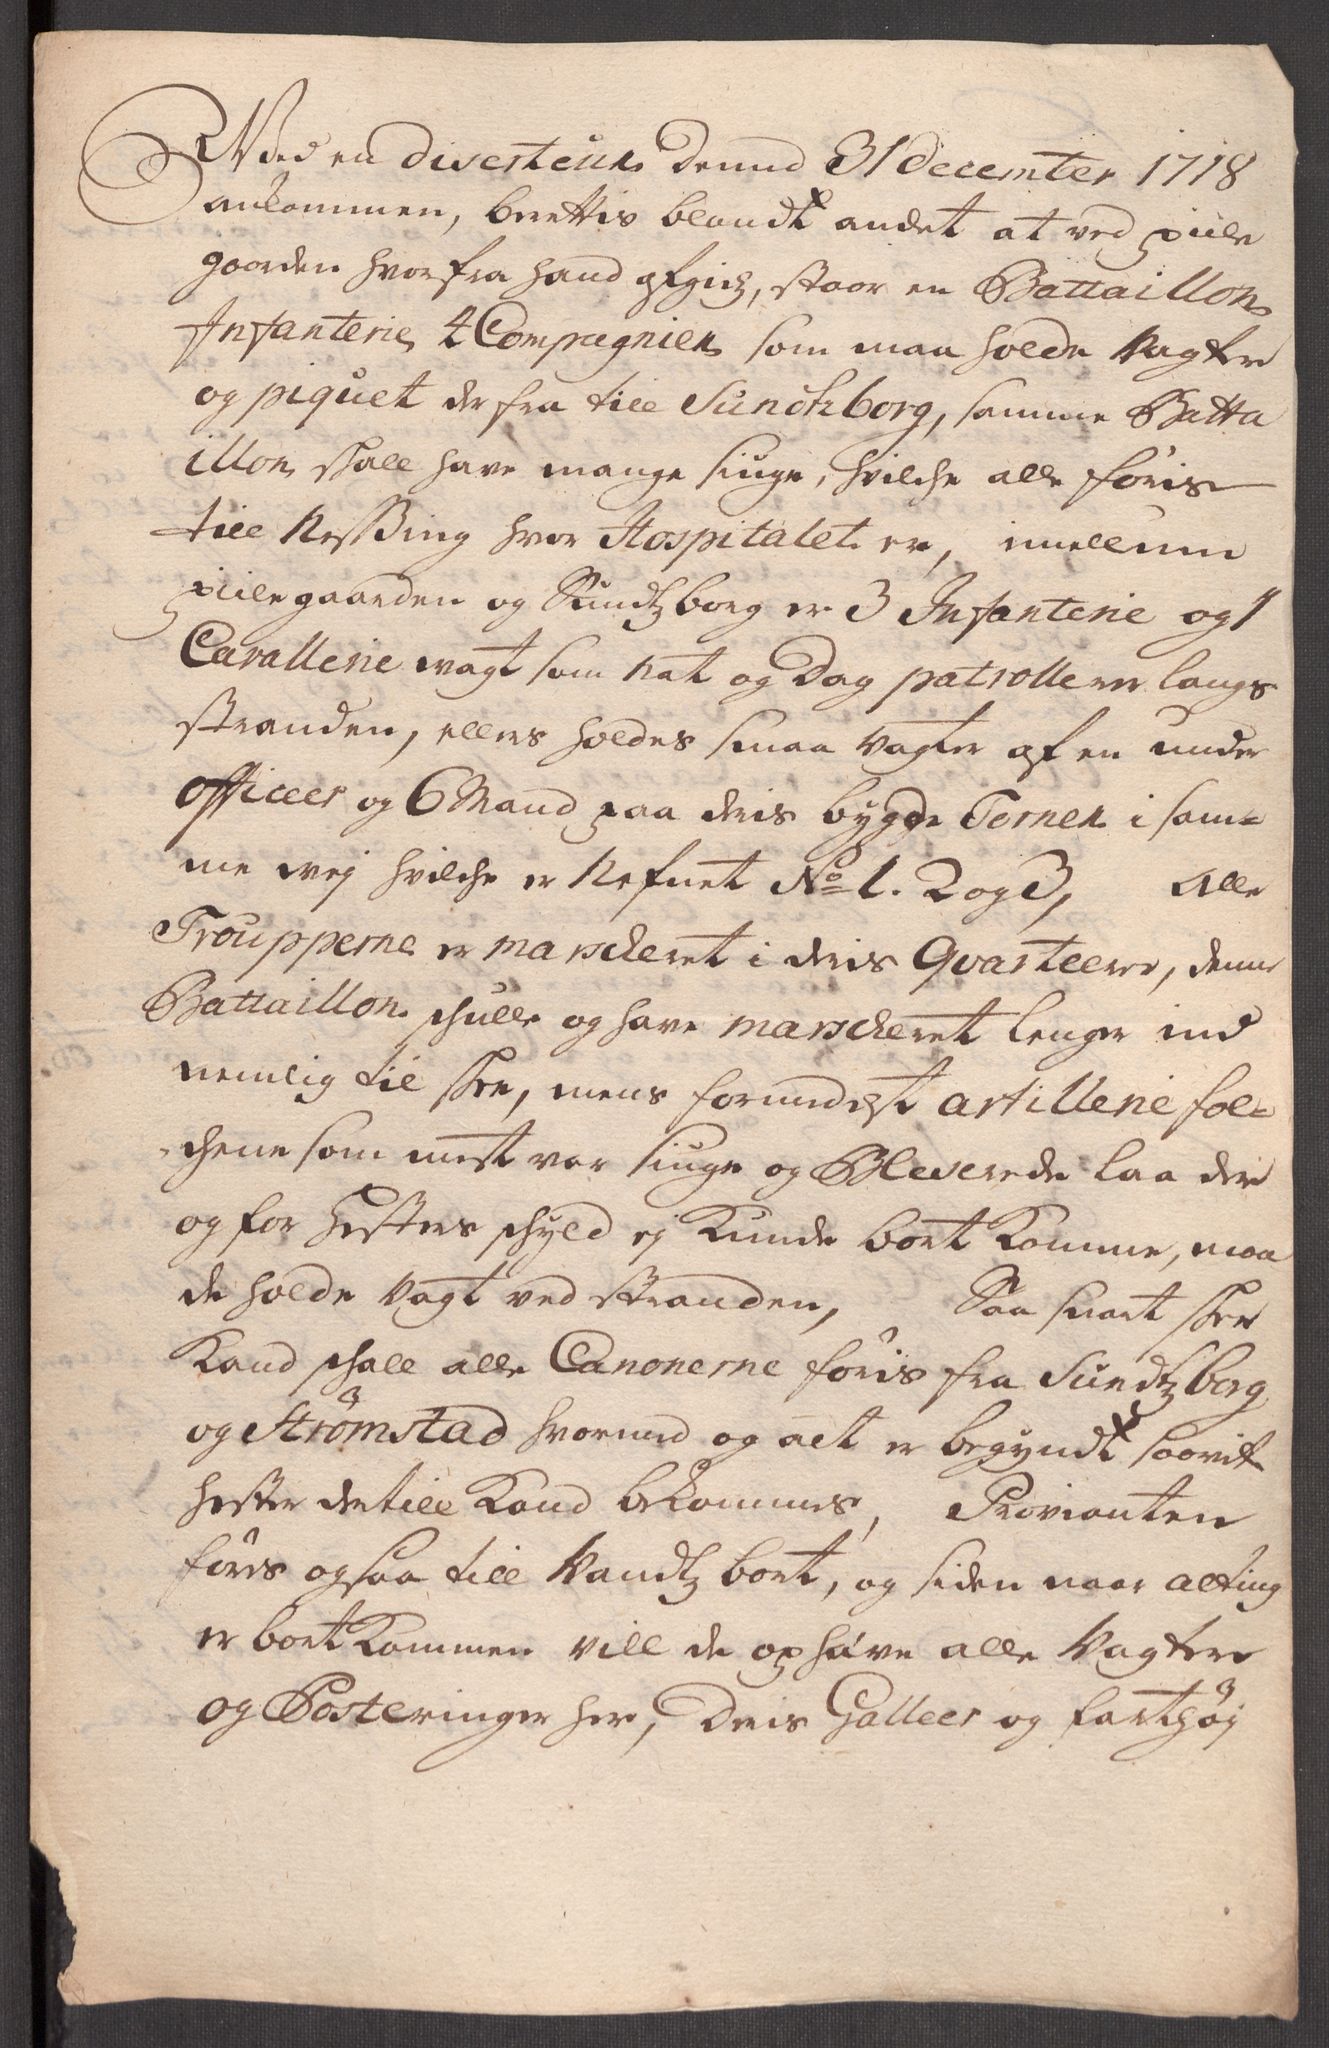 Ved en diverteur denne 31 december 1718
ankommen, berettis blandt andet at ved piile
gaarden hvorfra hand afgick, staar en Battaillon
Infanterie 4 Compagnier som maa holde Vagter
og piquet der fra till Sundtzborg, samme Batta
illon skall have mange siuge, hvilche alle föris
till Nessing hvor Hospitalet er, imellum
piilegaarden og Sundtzborg er 3 Infanterie og 1
Cavallerie wagt som Nat og Dag patrollerer langs
stranden, ellers holdes smaa Vagter af en under
officeer og 6 Mand paa deris bygde Torner i sam=
me wej hvilche er Nefnet No 1. 2 og 3, Alle
Troupperne er marscheret i deris Qvarteerer, denne
Battaillon schulle og have marscheret lenger ind
nemlig til skee, mens formedelst artillerie fol=
chene som mest var siuge og Blesserede laa der
og for Hesters schyld ej Kunde bort Komme, maa
de holde Vagt ved stranden, Saa snart skee
Kand schall alle Canonerne föris fra Sundtzborg
og Strömstad hvormed og alt er begyndt saavit
hester dertill Kand bekommes, Provianten
föris ogsaa till Vandtz bort, og siden naar alting
er bort Kommen vill de ophäve alle Vagter
og Posteringer her, Deris Galleer og farthöj